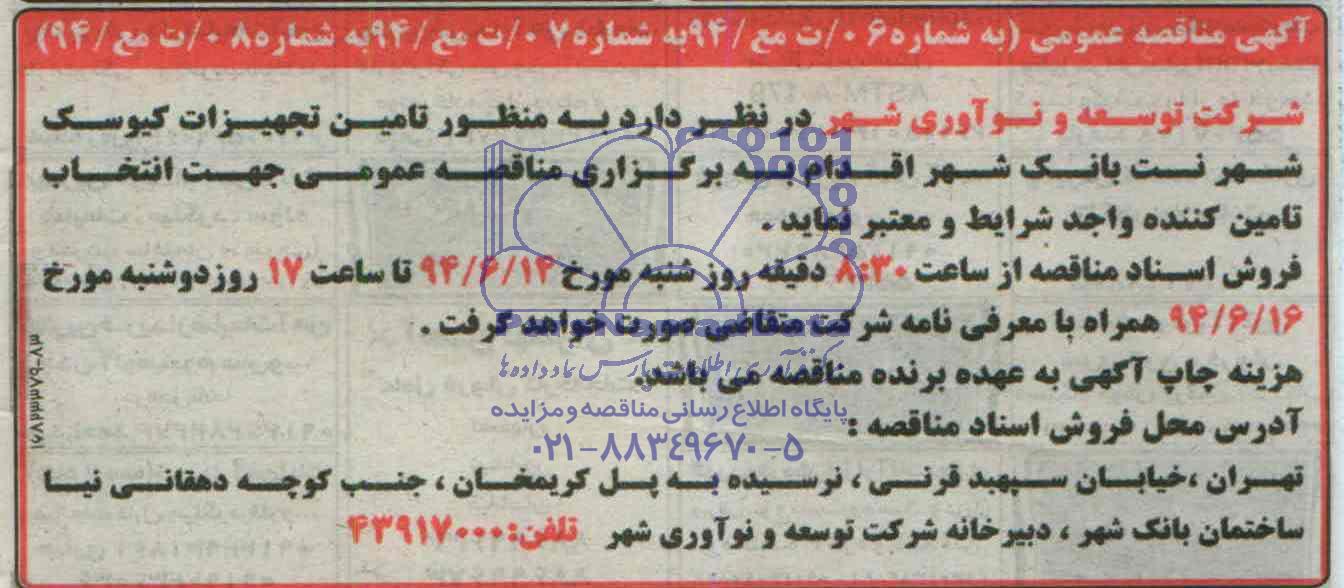 آگهی مناقصه عمومی (به شماره ۰۶/ت مع/۹۴به شماره ۰۷/ت مع/۹۴به شماره ۰۸/ت مع/۹۴)
شرکت توسعه و نوآوری شهر در نظر دارد به منظور تامین تجهیزات کیوسک
شهر نت بانک شهر اقدام به برگزاری مناقصه عمومی جهت انتخاب
تامین کننده واجد شرایط و معتبر نماید .
فروش اسناد مناقصه از ساعت ۸:۳۰ دقیقه روز شنبه مورخ ۹۴/۶/۱۴ تا ساعت ۱۷ روزدوشنبه مورخ
۹۴/۶/۱۶ همراه با معرفی نامه شرکت متقاضی صورت خواهد گرفت .
هزینه چاپ آگهی به عهده برنده مناقصه می باشد.
آدرس محل فروش اسناد مناقصه :
تهران ،خیابان سپهبد قرنی ، نرسیده به پل کریمخان ، جنب کوچه دهقانی نیا
ساختمان بانک شهر ، دبیرخانه شرکت توسعه و نوآوری شهر تلفن:۴۳۹۱۷۰۰۰
پایگاه اطلاع رسانی مناقصه و مزایده
۰۲۱-۸۸۳۴۹۶۷۰-۵